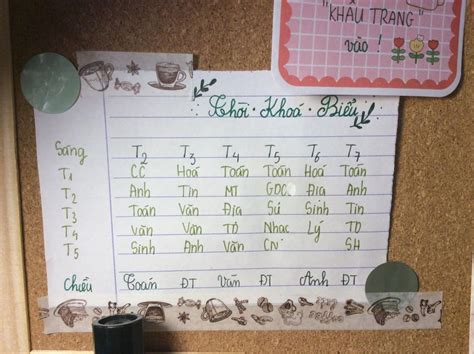 "KHẨU TRANG"
vào !
Thời · Khoá · Biểu
Sáng T2 T3 T4 T5 T6 T7
T1 CC Hoá Toán Toán Hoá Toán
T2 Anh Tin MT GDCD Địa Anh
T3 Toán Văn Địa Sử Sinh Tin
T4 Văn Văn TD Nhạc Lý TD
T5 Sinh Anh Văn CN SH
Chiều Toán ĐT Văn ĐT Anh ĐT